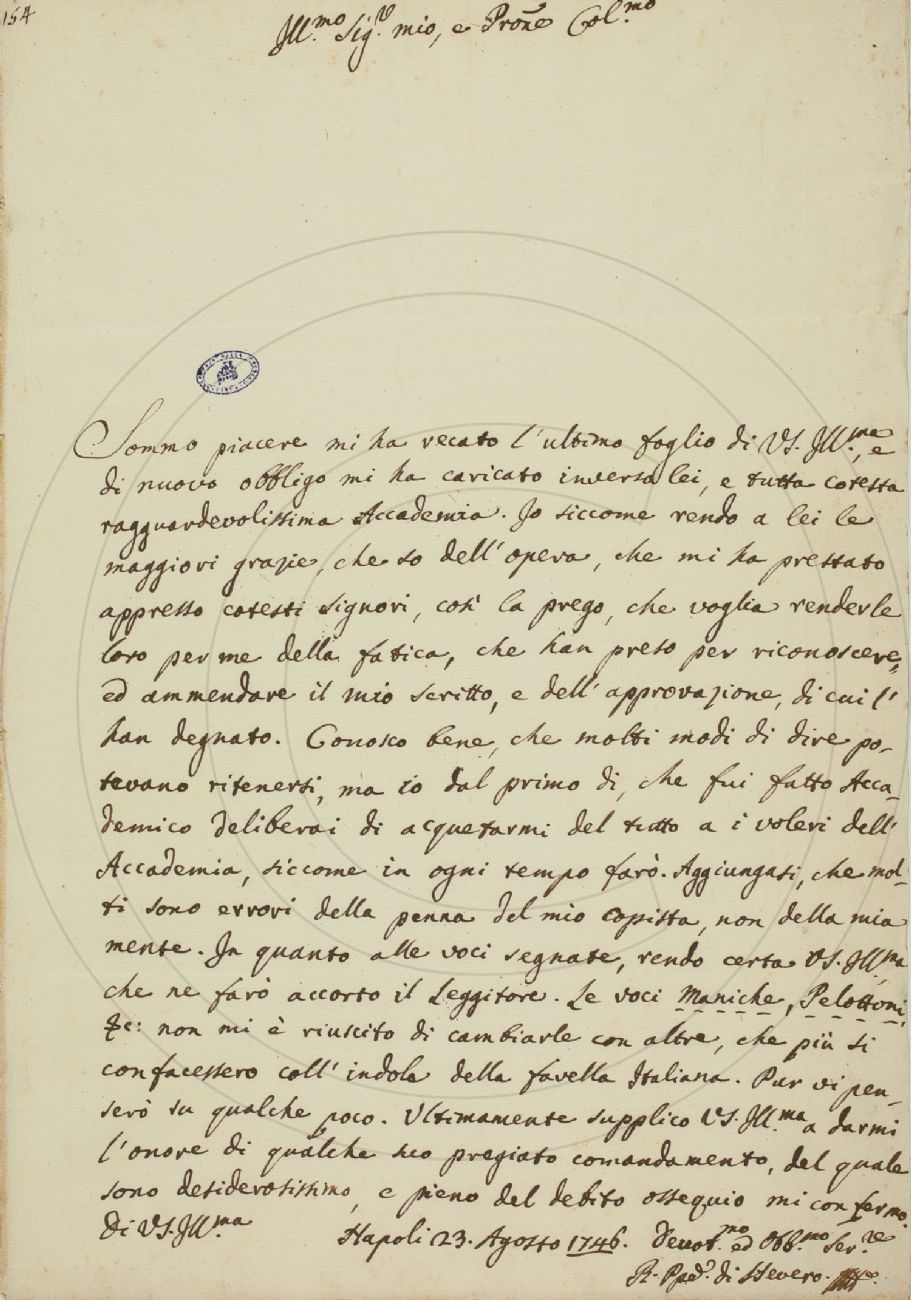 154
Ill.mo Sig.r mio, e Prone Col.mo
Sommo piacere mi ha recato l'ultimo foglio di VS. Ill.ma, e
di nuovo obbligo mi ha caricato inverso lei, e tutta cotesta
ragguardevolissima Accademia. Io siccome rendo a lei le
maggiori grazie, che so dell'opera, che mi ha prestato
appresso cotesti Signori, così la prego, che voglia renderle
loro per me della fatica, che han preso per riconoscere,
ed ammendare il mio scritto, e dell'approvazione, di cui l'
han degnato. Conosco bene, che molti modi di dire po-
tevano ritenersi, ma io dal primo dì, che fui fatto Acca-
demico deliberai di acquetarmi del tutto a i voleri dell'
Accademia, siccome in ogni tempo farò. Aggiungasi, che mol-
ti sono errori della penna del mio copista, non della mia
mente. In quanto alle voci segnate, rendo certa VS. Ill.ma
che ne farò accorto il Leggitore. Le voci Maniche, Pelottoni,
&c: non mi è riuscito di cambiarle con altre, che più si
confacessero coll'indole della favella Italiana. Pur vi pen-
serò su qualche poco. Ultimamente supplico VS. Ill.ma a darmi
l'onore di qualche suo pregiato comandamento, del quale
sono desiderosissimo, e pieno del debito ossequio mi confermo.
Di VS. Ill.ma
Napoli 23. Agosto 1746. Devot.mo ed Obb.mo Ser.re
R. di Severo.